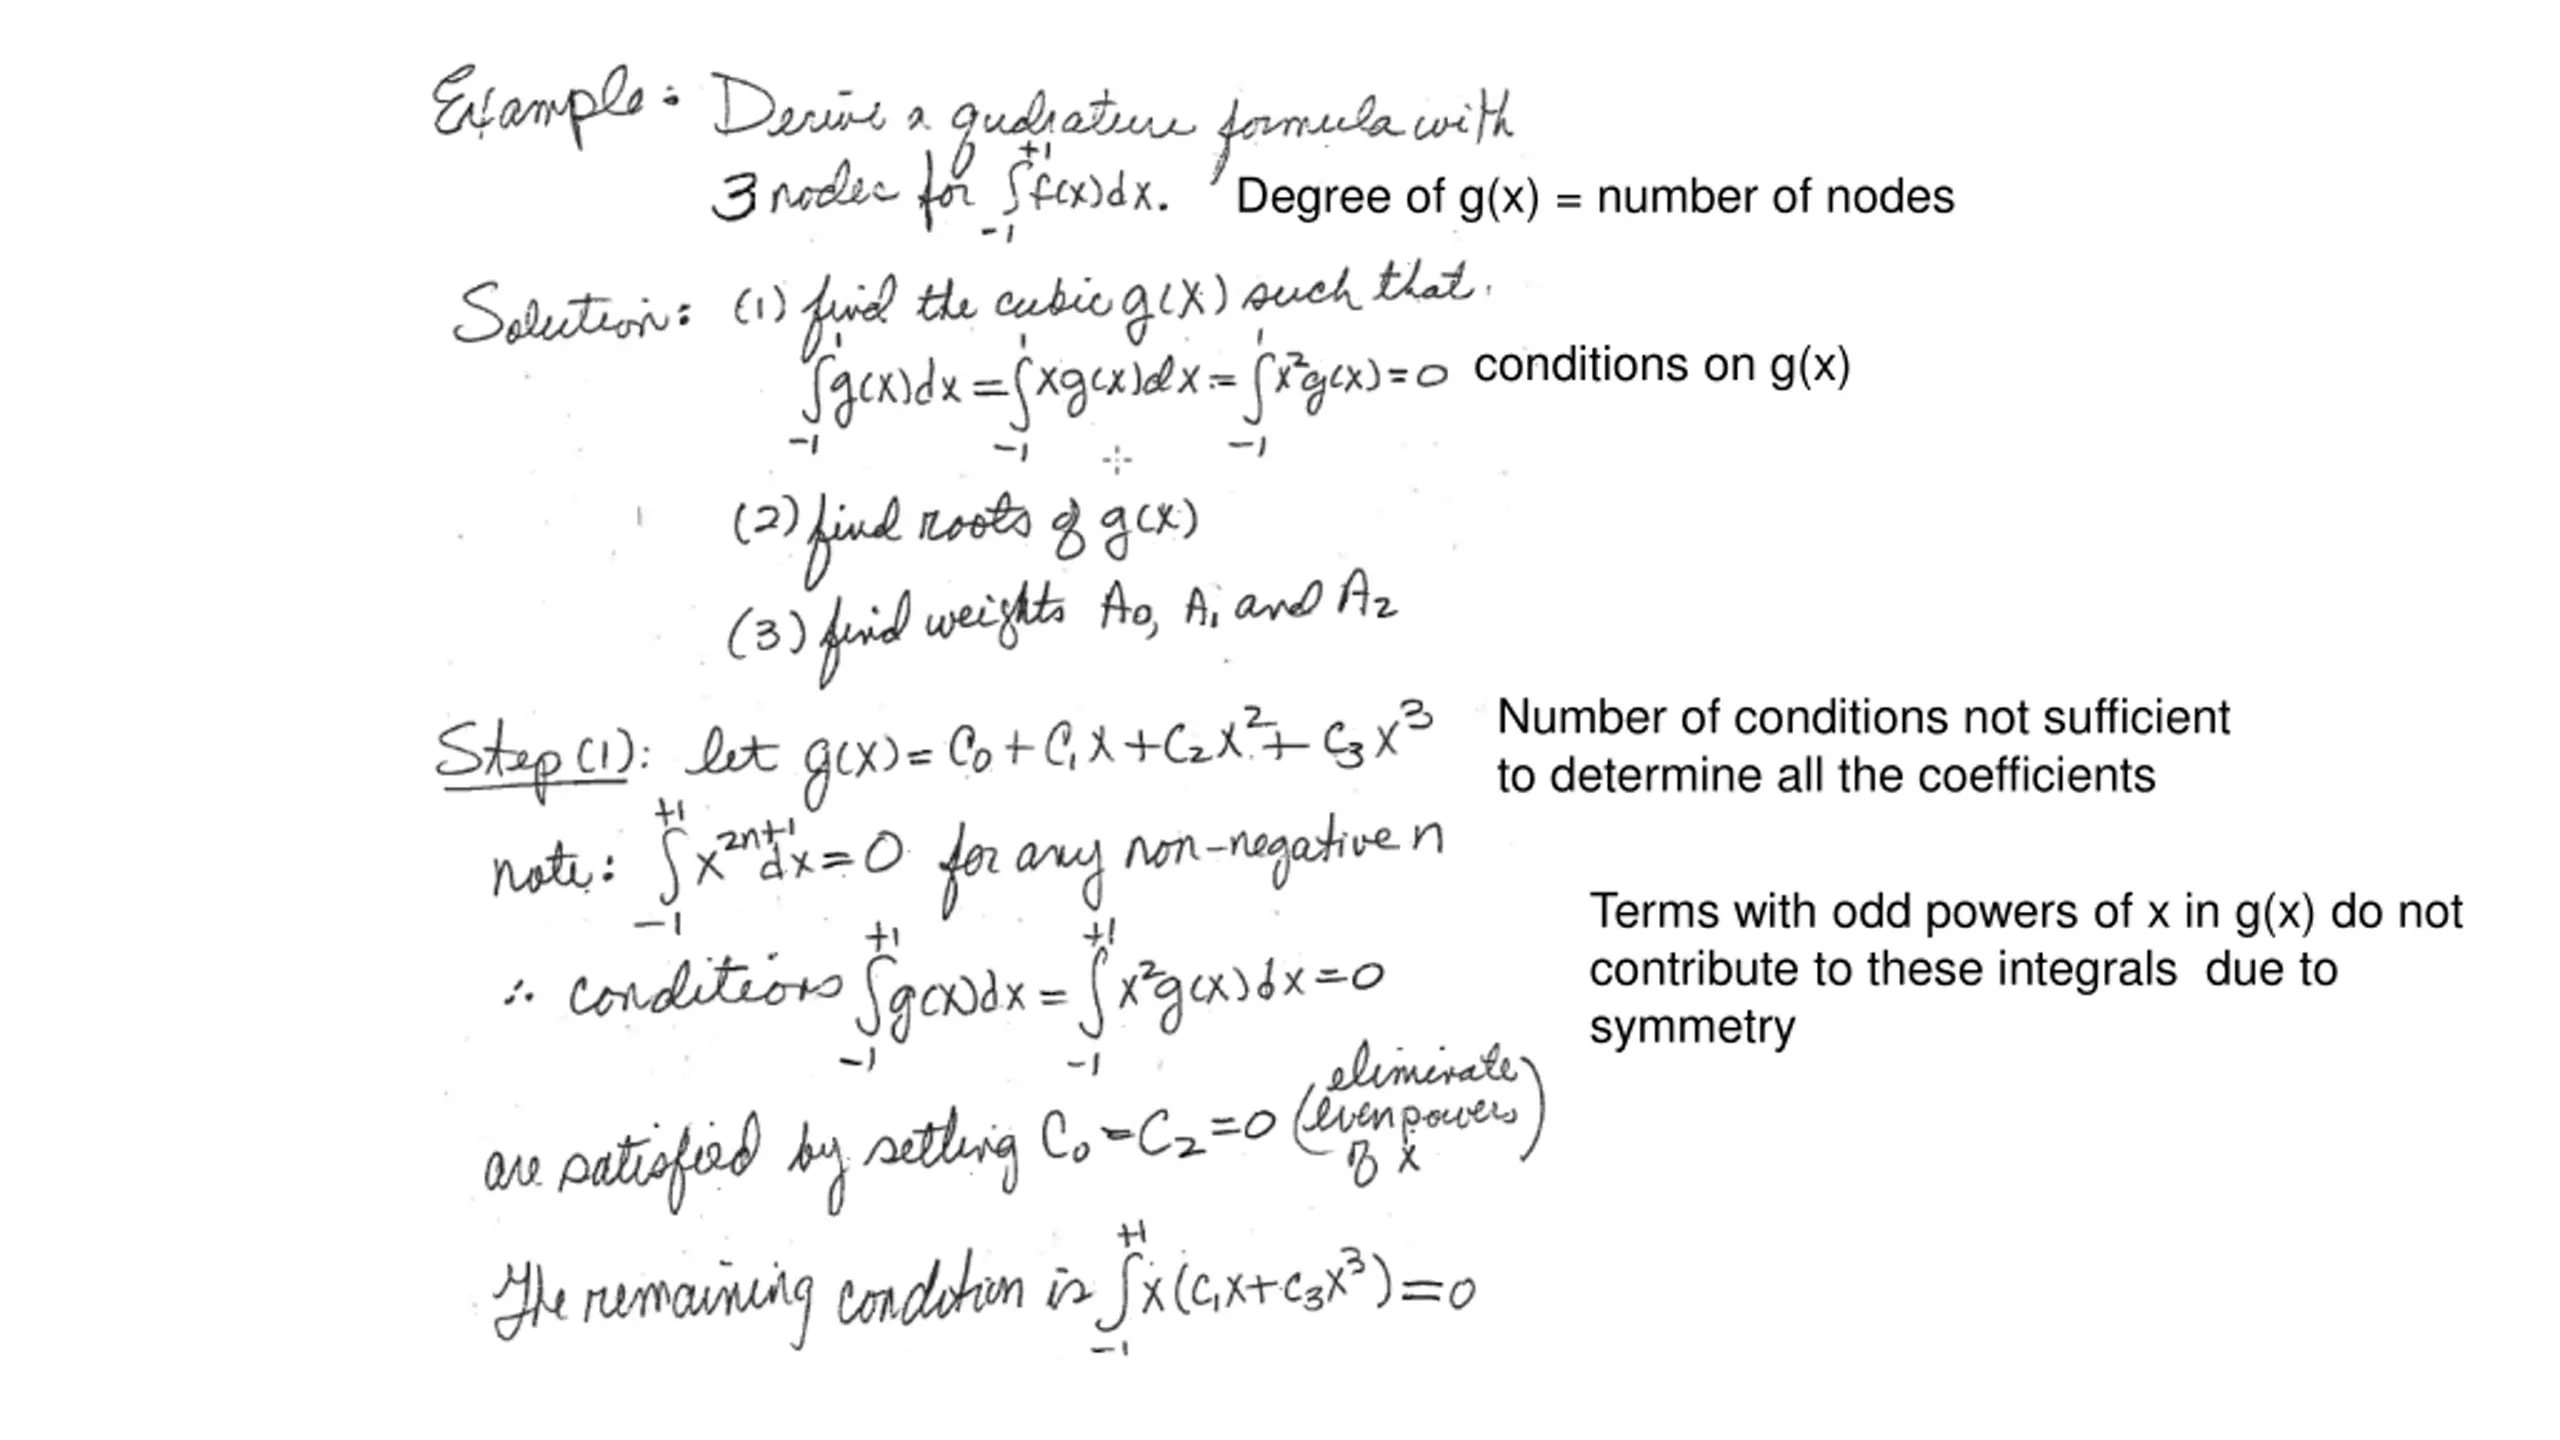 Example: Derive a qudrature formula with
3 nodes for ∫₋₁⁺¹ f(x)dx. Degree of g(x) = number of nodes
Solution: (1) find the cubic g(x) such that.
∫₋₁¹ g(x)dx = ∫₋₁¹ xg(x)dx = ∫₋₁¹ x²g(x) = 0 conditions on g(x)
(2) find roots of g(x)
(3) find weights A₀, A₁ and A₂
Step (1): let g(x) = C₀ + C₁x + C₂x² + C₃x³
Number of conditions not sufficient
to determine all the coefficients
note: ∫₋₁⁺¹ x²ⁿ⁺¹dx = 0 for any non-negative n
Terms with odd powers of x in g(x) do not
contribute to these integrals due to
symmetry
∴ conditions ∫₋₁⁺¹ g(x)dx = ∫₋₁⁺¹ x²g(x)dx = 0
are satisfied by setting C₀ = C₂ = 0 (eliminate
even powers
of x)
The remaining condition is ∫₋₁⁺¹ x(C₁x + C₃x³) = 0